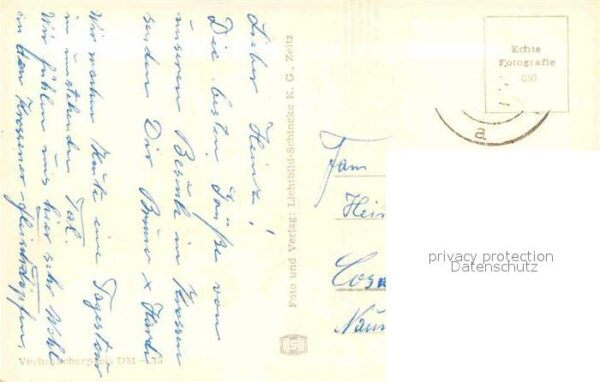 Lieber Heinz!
Die besten Grüße von
unserem Besuch in Krossen
senden Dir Bruno + Hardi
Wir machen heute eine Tagestour
in umstehenden Tal.
Wir fühlen uns hier sehr wohl
in den Krossener
Foto und Verlag: Lichtbild-Schincke K. G., Zeitz
Verbraucherpreis DM
Echte
Fotografie
030
a
Fam
Hein
Naum
privacy protection
Datenschutz